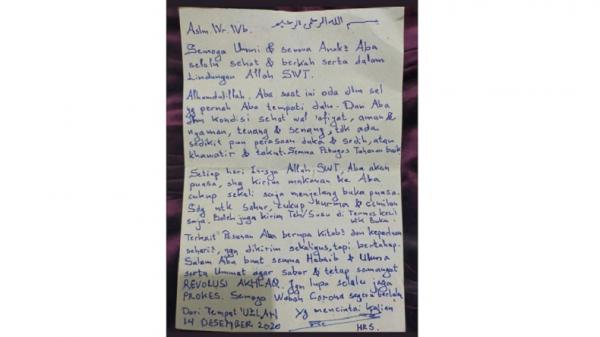 بسم الله الرحمن الرحيم
Aslm. Wr. Wb.
Semoga Ummi & semua Anak² Aba
selalu sehat & berkah serta dalam
Lindungan Allah SWT.
Alhamdulillah. Aba saat ini ada dlm sel
yg pernah Aba tempati dulu. Dan Aba
dlm kondisi sehat wal 'afiyat, aman &
nyaman, tenang & senang, tdk ada
sedikit pun perasaan duka & sedih, atau
khawatir & takut. Semua Petugas Tahanan baik
Setiap hari In-sya Allah SWT, Aba akan
puasa, shg kirim makanan ke Aba
cukup sekali saja menjelang buka puasa.
Sdg utk sahur, cukup kurma & cemilan
saja. Boleh juga kirim Teh/Susu di Termos kecil
utk Buka.
Terkait Pesanan Aba berupa kitab² dan keperluan
sehari², jgn dikirim sekaligus, tapi bertahap.
Salam Aba buat semua Habaib & Ulama
serta Ummat agar sabar & tetap semangat
REVOLUSI AKHLAQ. Jgn lupa selalu jaga
PROKES. Semoga Wabah Corona segera berlalu.
Dari Tempat 'UZLAH Yg mencintai kalian
14 DESEMBER 2020
HRS.